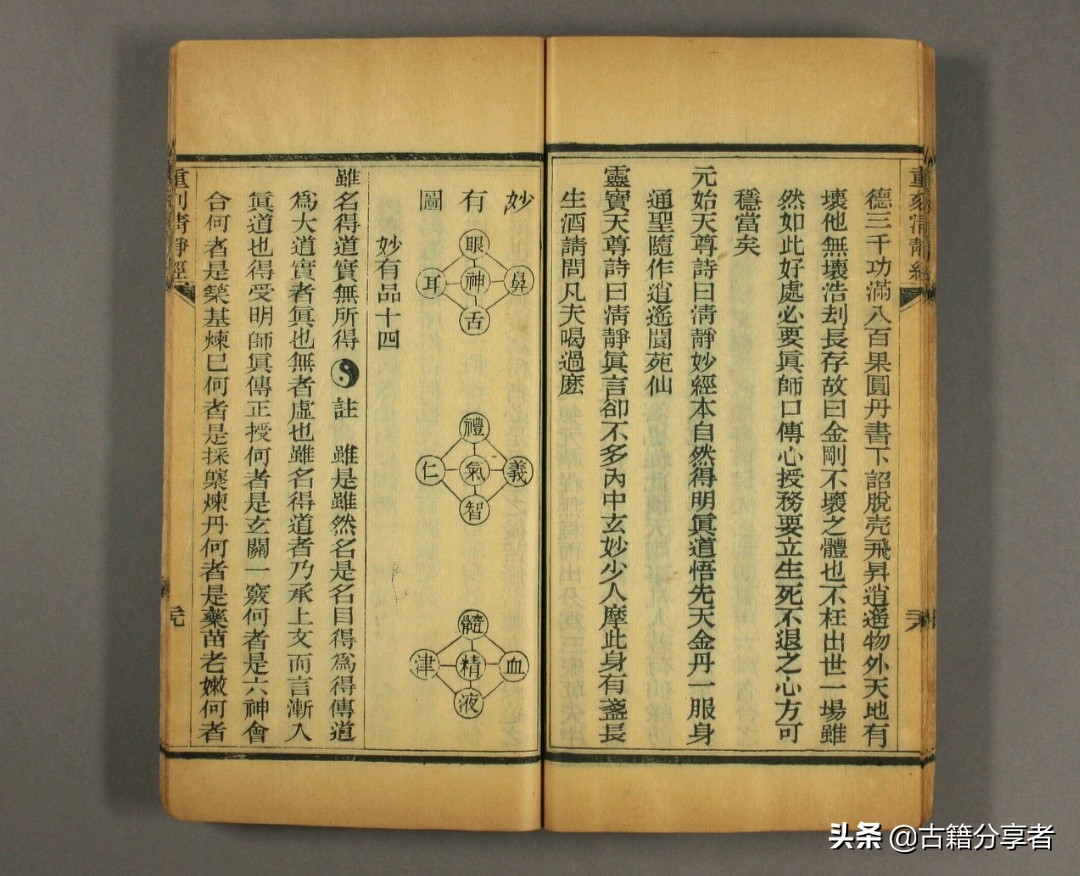 重刻清靜經
德三千功滿八百果圓丹書下詔脫壳飛昇逍遙物外天地有
壞他無壞浩刦長存故曰金剛不壞之體也不枉出世一場雖
然如此好處必要眞師口傳心授務要立生死不退之心方可
穩當矣
元始天尊詩曰清靜妙經本自然得明眞道悟先天金丹一服身
通聖隨作逍遙閬苑仙
靈寶天尊詩曰清靜眞言卻不多內中玄妙少人摩此身有盞長
生酒請問凡夫喝過麽
妙有圖
眼
鼻 神 耳
舌
禮
義 氣 仁
智
髓
血 精 津
液
妙有品十四
雖名得道實無所得 註 雖是雖然名是名目得爲得傳道
爲大道實者眞也無者虛也雖名得道者乃承上文而言漸入
眞道也得受明師眞傳正授何者是玄關一竅何者是六神會
合何者是築基煉已何者是採藥煉丹何者是藥苗老嫩何者
重刻清靜經
头条 @古籍分享者